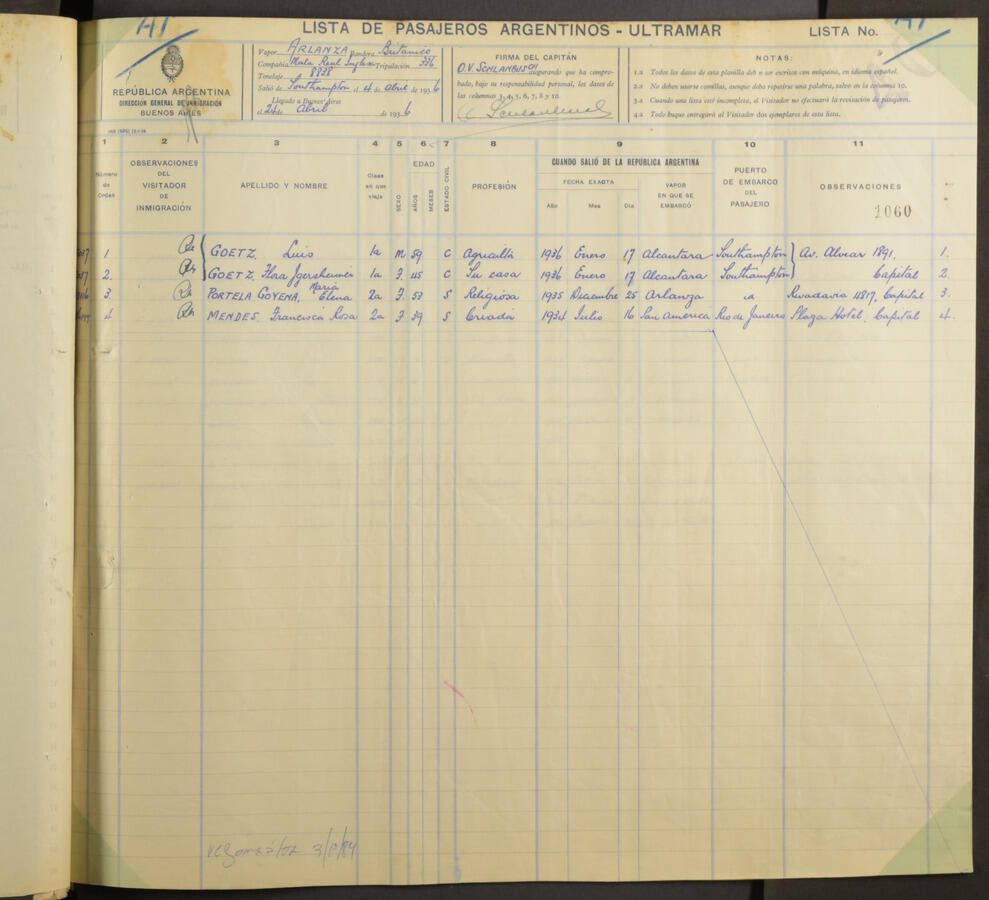 A1 LISTA DE PASAJEROS ARGENTINOS - ULTRAMAR LISTA No. A1
REPÚBLICA ARGENTINA
DIRECCIÓN GENERAL DE INMIGRACIÓN
BUENOS AIRES
Vapor ARLANZA Bandera Britanico
Compañía Mala Real Inglesa Tripulación 336
Tonelaje 8838
Salió de Southampton el 4 de Abril de 1936
Llegado a Buenos Aires
el 24 de Abril de 1936
FIRMA DEL CAPITÁN
O.V. SCHLANBUSCH asegurando que ha compro-
bado, bajo su responsabilidad personal, los datos de
las columnas 3, 4, 5, 6, 7, 8 y 10
NOTAS:
1.a Todos los datos de esta planilla deben ser escritos con máquina, en idioma español.
2.a No deben usarse comillas, aunque deba repetirse una palabra, salvo en la columna 10.
3.a Cuando una lista esté incompleta, el Visitador no efectuará la revisación de pasajeros.
4.a Todo buque entregará al Visitador dos ejemplares de esta lista.
1 2 3 4 5 6 7 8 9 10 11
Número de Orden
OBSERVACIONES DEL VISITADOR DE INMIGRACIÓN
APELLIDO Y NOMBRE
Clase en que viaja
SEXO
EDAD
AÑOS
MESES
ESTADO CIVIL
PROFESIÓN
CUANDO SALIÓ DE LA REPÚBLICA ARGENTINA
FECHA EXACTA
Año Mes Día
VAPOR EN QUE SE EMBARCÓ
PUERTO DE EMBARCO DEL PASAJERO
OBSERVACIONES
1060
1 GOETZ, Luis 1a M 59 C Agricultor 1936 Enero 17 Alcantara Southampton Av. Alvear 1891. 1.
2. GOETZ, Flora Igersheimer 1a F. 45 C Su casa 1936 Enero 17 Alcantara Southampton Capital 2.
3. PORTELA GOYENA, Maria Elena 2a F. 53 S Religiosa 1935 Diciembre 25 Arlanza id Rivadavia 4817, Capital 3.
4 MENDES, Francisca Rosa 2a F 39 S Criada 1934 Julio 16 San America Rio de Janeiro Plaza Hotel, Capital 4.